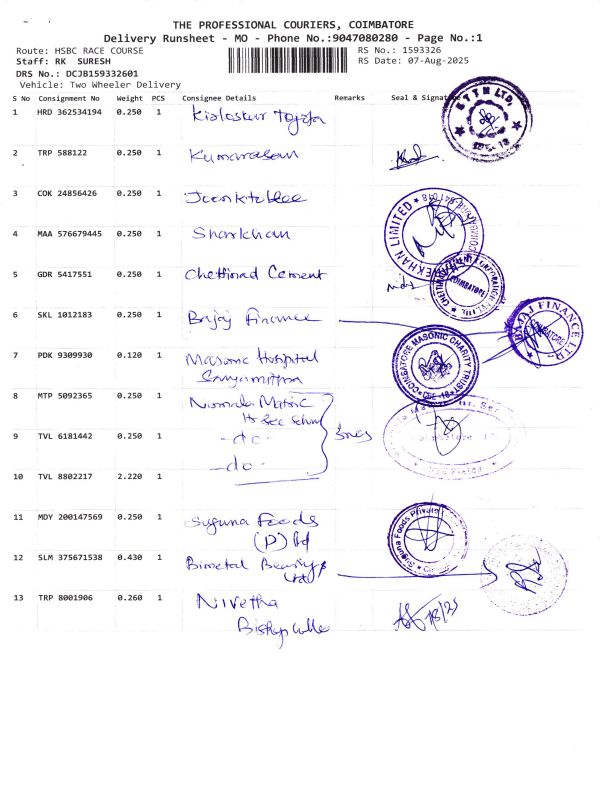 THE PROFESSIONAL COURIERS, COIMBATORE
Delivery Runsheet - MO - Phone No.:9047080280 - Page No.:1
Route: HSBC RACE COURSE
RS No.: 1593326
Staff: RK SURESH
RS Date: 07-Aug-2025
DRS No.: DCJB159332601
Vehicle: Two Wheeler Delivery
S No Consignment No Weight PCS Consignee Details Remarks Seal & Signature
1 HRD 362534194 0.250 1 Kirloskar Toyota
2 TRP 588122 0.250 1 Kumarasan
3 COK 24856426 0.250 1
4 MAA 576679445 0.250 1 Sharekhan
REKHAN LIMITED
5 GDR 5417551 0.250 1 Chettinad Cement
COIMBATORE
6 SKL 1012183 0.250 1 Bajaj Finance
BAJAJ FINANCE LTD.
COIMBATORE
7 PDK 9309930 0.120 1 Masonic Hospital
COIMBATORE MASONIC CHARITY TRUST
CBE-18
8 MTP 5092365 0.250 1 Nirmala Matric
Hr Sec School
9 TVL 6181442 0.250 1 -do-
-do-
10 TVL 8802217 2.220 1
11 MDY 200147569 0.250 1 Suguna Foods
(P) ltd
Suguna Foods Private
12 SLM 375671538 0.430 1 Bimetal Bearings
Ltd
13 TRP 8001906 0.260 1 Nivetha
7/8/25
Bishop